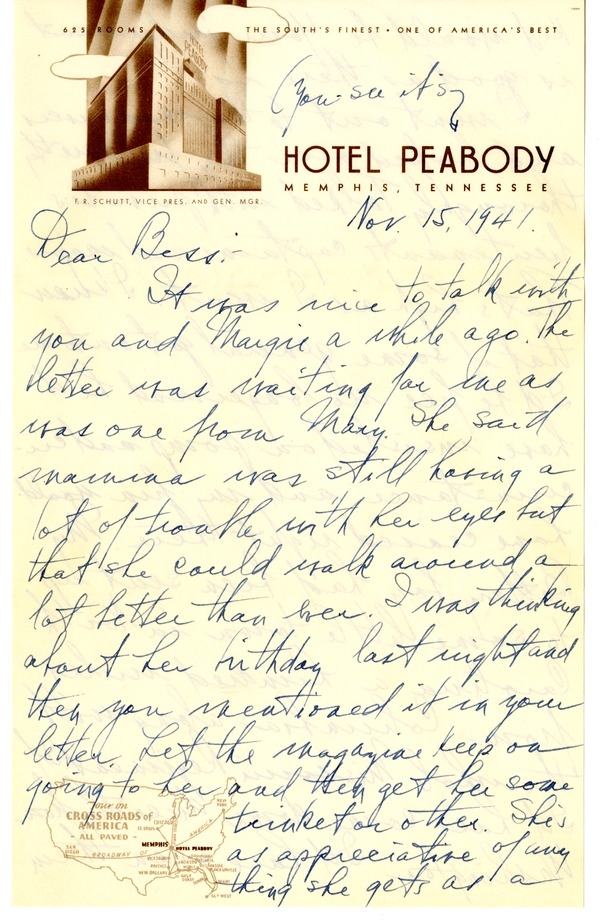 625 ROOMS
THE SOUTH'S FINEST • ONE OF AMERICA'S BEST
HOTEL PEABODY
(You see it's
HOTEL PEABODY
MEMPHIS, TENNESSEE
F. R. SCHUTT, VICE PRES. AND GEN. MGR.
Nov. 15, 1941.
Dear Bess:-
It was nice to talk with
you and Margie a while ago. The
letter was waiting for me as
was one from Mary. She said
mamma was still having a
lot of trouble with her eyes but
that she could walk around a
lot better than ever. I was thinking
about her birthday last night and
then you mentioned it in your
letter. Let the magazine keep on
going to her and then get her some
trinket or other. She's
as appreciative of any
thing she gets as a
Tour on
CROSS ROADS of
AMERICA
- ALL PAVED -
CHICAGO
NEW YORK
ST. LOUIS
MEMPHIS
HOTEL PEABODY
SAN DIEGO
BROADWAY OF AMERICA
VICKSBURG
NATCHEZ
NEW ORLEANS
MOBILE
JACKSONVILLE
GULF COAST
MIAMI
KEY WEST